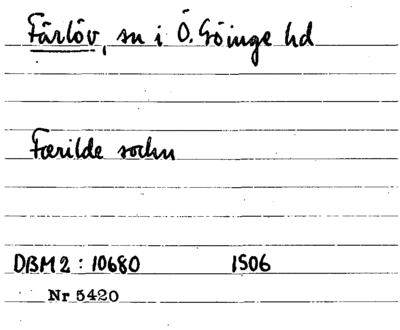 Färlöv, sn i Ö. Göinge hd
Færilde sochn
DBM2: 10680 1506
Nr 5420